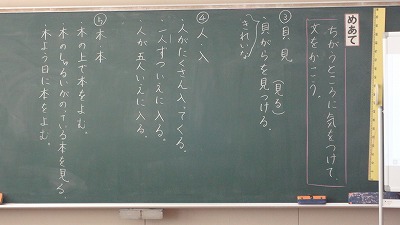 めあて
ちがうところに気をつけて、
文をかこう。
③ 貝 見 (見る)
きれいな
貝がらを見つける。
④ 人・入
・人がたくさん入ってくる。
・一人ずついえに入る。
・人が五人いえに入る。
⑤ 木 本
・木の上で本をよむ。
・木のしゅるいがのっている本を見る。
・木よう日に本をよむ。